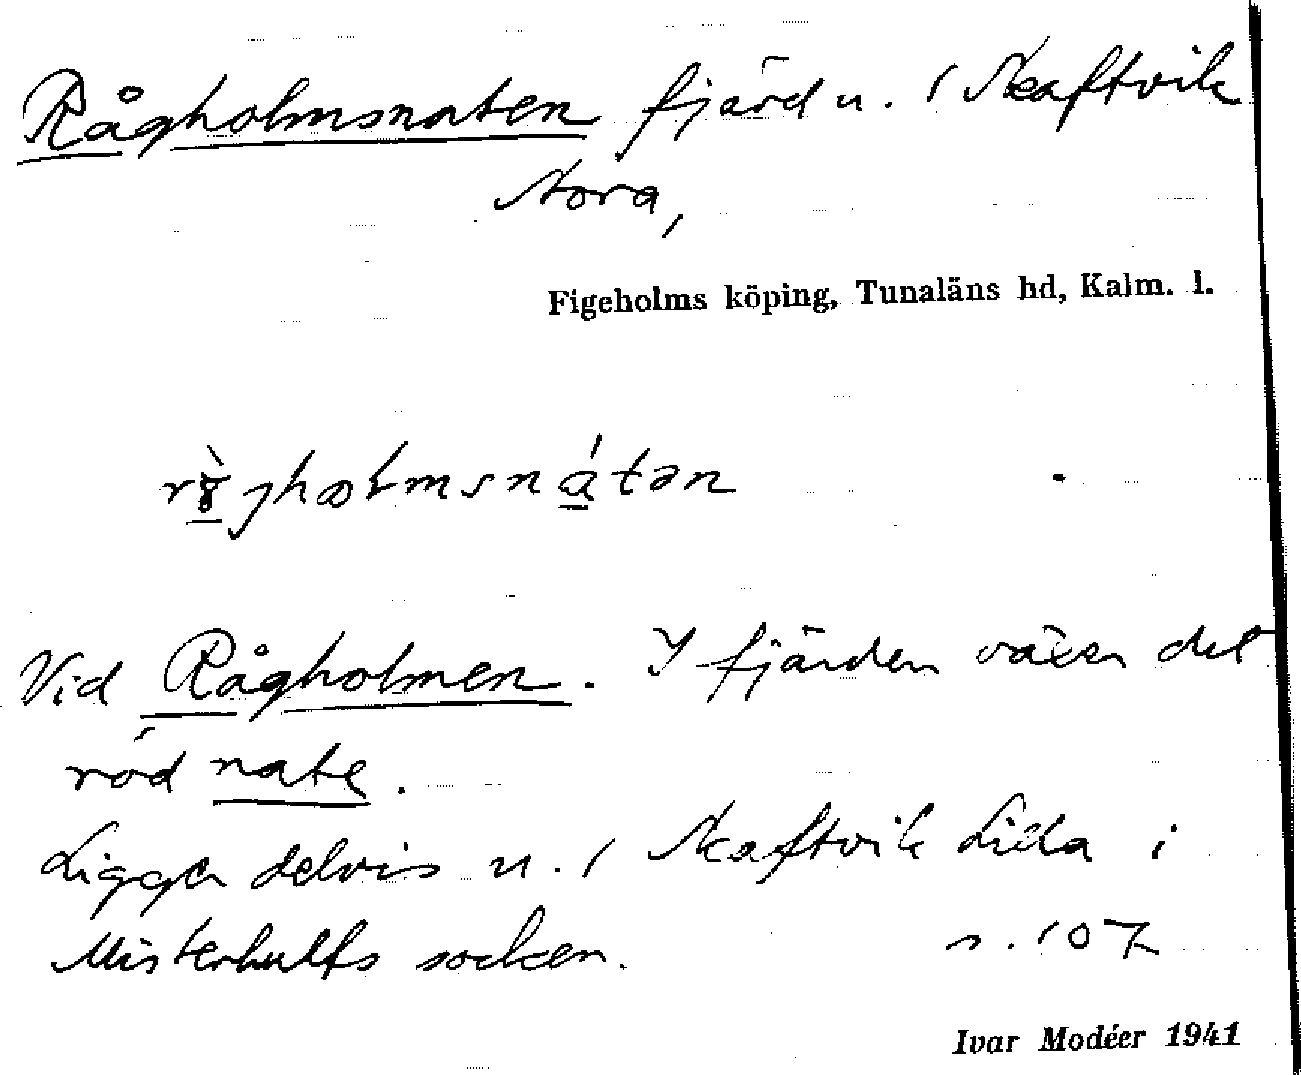 Rågholmsnaten fjärd u. 1 Skaftvik
Norra,
Figeholms köping, Tunaläns hd, Kalm. l.
Vid Rågholmen. I fjärden växer det
röd nate.
Ligger delvis u. 1 Skaftvik Lilla i
Misterhults socken. s. 107
Ivar Modéer 1941